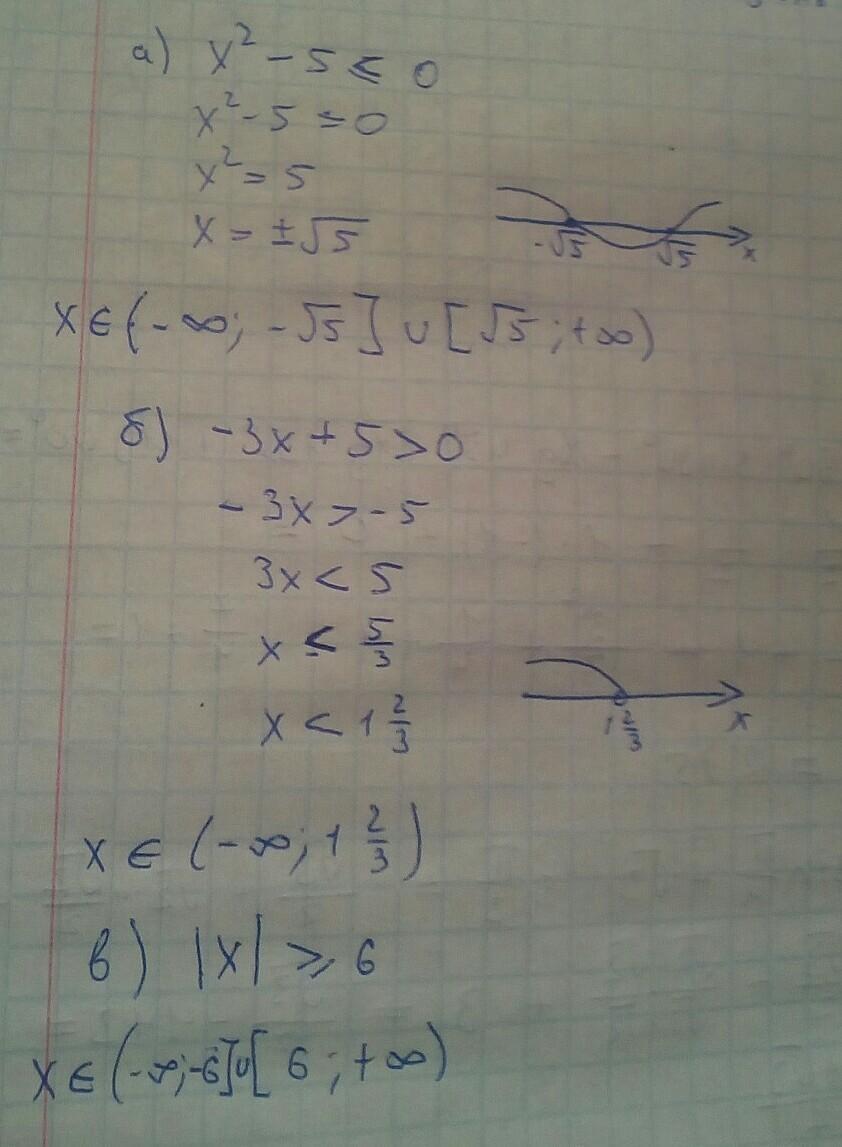 а) x² - 5 ≤ 0
x² - 5 = 0
x² = 5
x = ±√5
-√5 √5 x
x ∈ (-∞; -√5] ∪ [√5; +∞)
б) -3x + 5 > 0
-3x > -5
3x < 5
x < 5/3
x < 1 2/3
1 2/3 x
x ∈ (-∞; 1 2/3)
в) |x| ≥ 6
x ∈ (-∞; -6] ∪ [6; +∞)